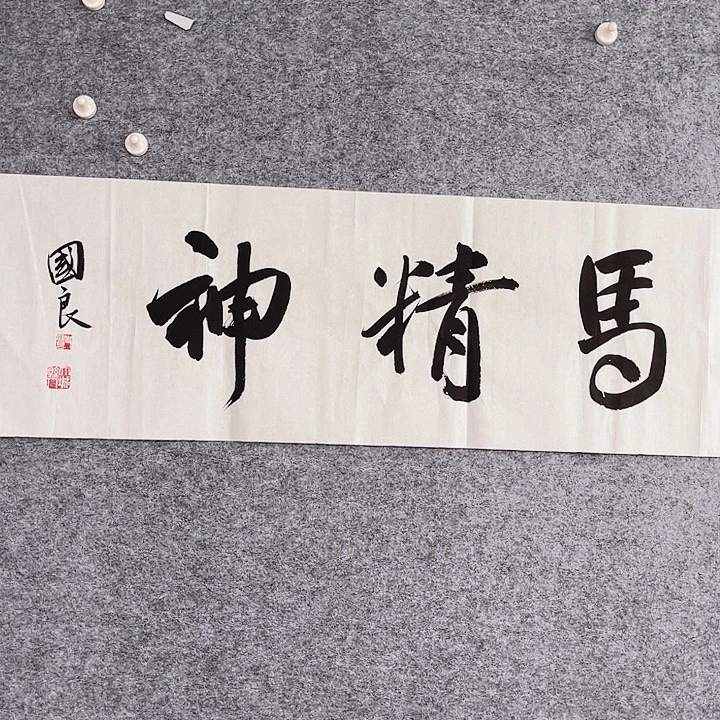 馬精神
國良